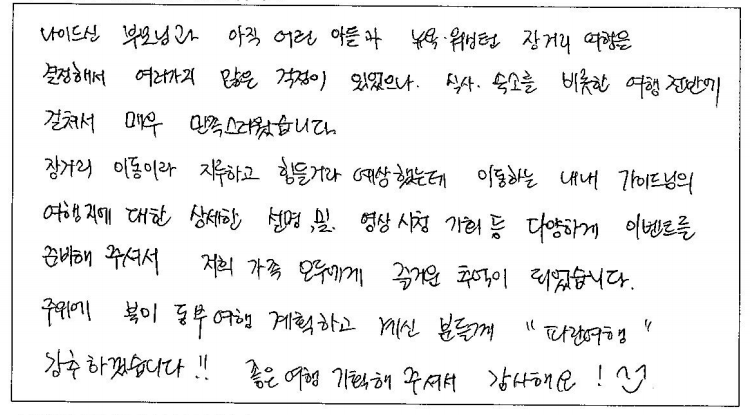 나이드신 부모님과 아직 어린 아들과 뉴욕·워싱턴 장거리 여행을
결정해서 여러가지 많은 걱정이 있었으나. 식사. 숙소를 비롯한 여행 전반에
걸쳐서 매우 만족스러웠습니다.
장거리 이동이라 지루하고 힘들거라 예상했는데 이동하는 내내 가이드님의
여행지에 대한 상세한 설명, 및. 영상 시청 기회 등 다양하게 이벤트를
준비해 주셔서 저희 가족 모두에게 즐거운 추억이 되었습니다.
주위에 북미 동부여행 계획하고 계신 분들께 "파란여행"
강추 하겠습니다!! 좋은 여행 기획해 주셔서 감사해요!